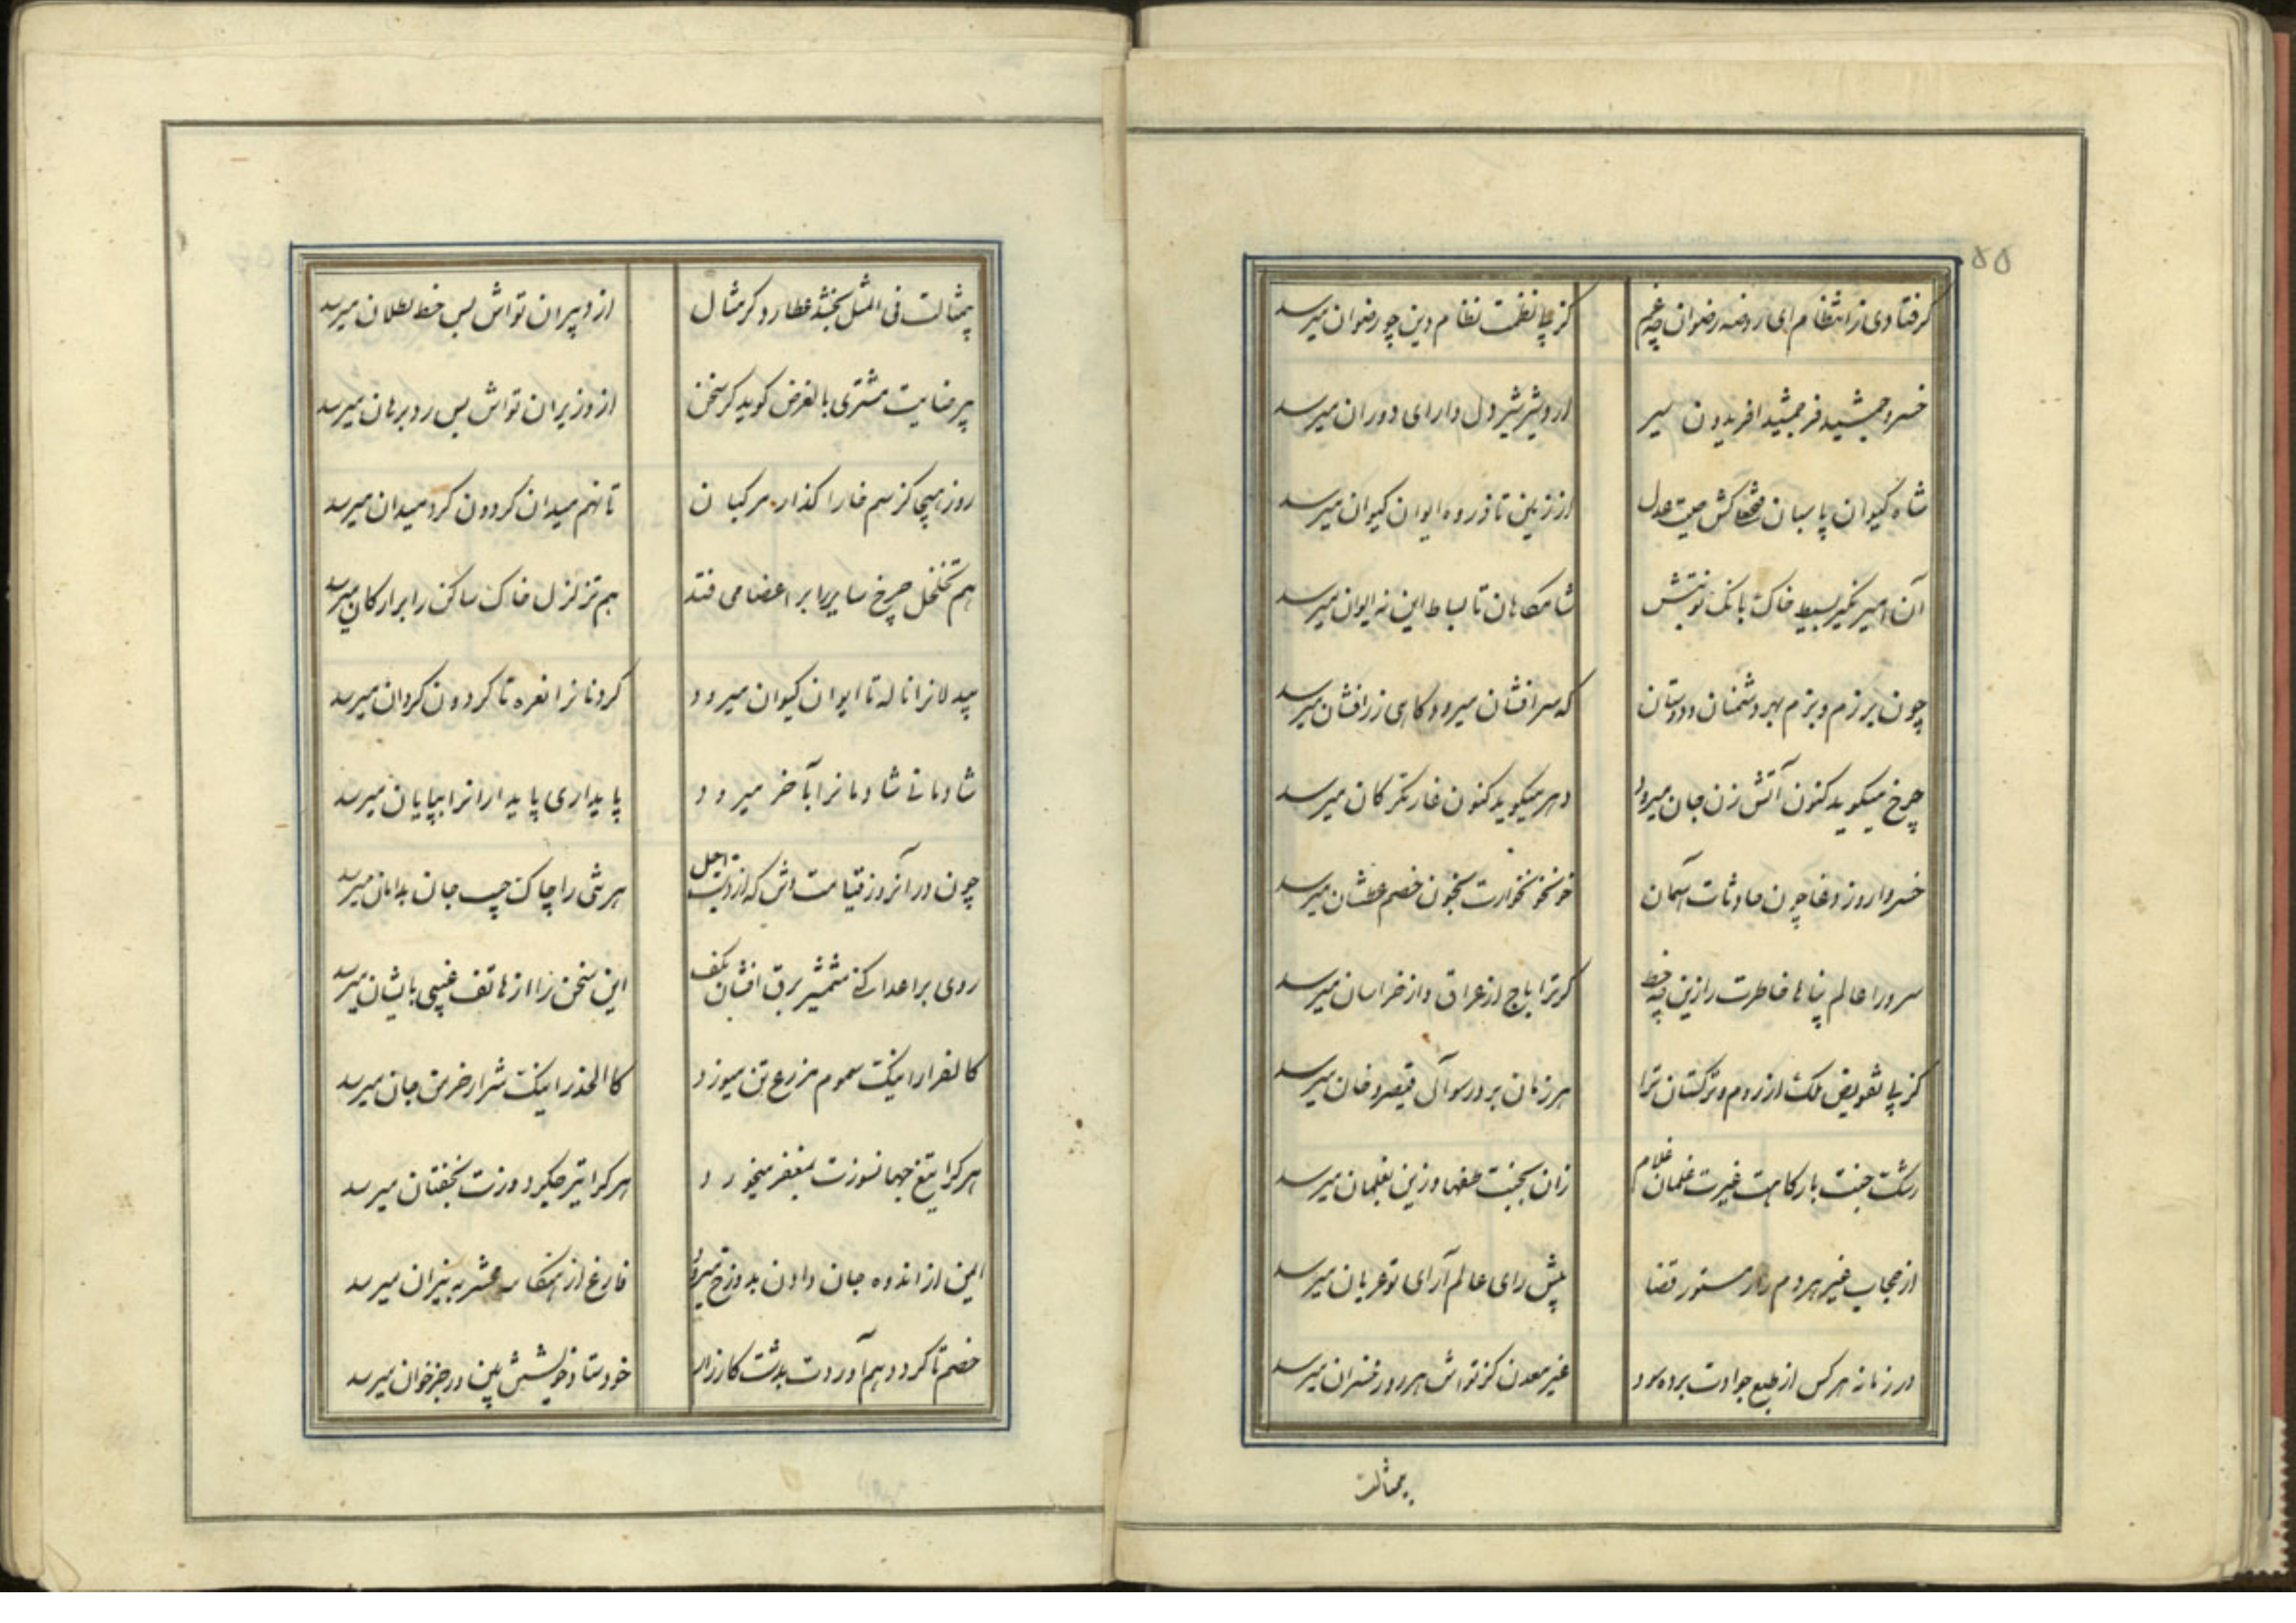 ۵۵
گر فتادی ز انتظام ای روضه رضوان چه غم کز پی نظمت نظام دین چو رضوان میرسد
خسرو جمشید فر جمشید افریدون سیر اردشیر شیر دل دارای دوران میرسد
شاه کیوان پاسبان کش صیت عدل از زمین تا ذروه ایوان کیوان میرسد
آن امیر بسیط خاک بانک نوبتش شامکاهان تا بساط این نه ایوان میرسد
چون برزم و بزم بهر دشمنان و دوستان که سرافشان میرود کاهی زرافشان میرسد
چرخ میکوید کنون آتش زن جان میرود دهر میکوید کنون غارتگر کان میرسد
خسروا روز وغا چون حادثات آسمان خونخوارت بخون خصم عطشان میرسد
سرورا عالم پناها خاطرت را زین چه حظ کز ترا باج از عراق و از خراسان میرسد
کز پی تفویض ملک از روم و ترکستان ترا هر زمان بر در رسول قیصر و خان میرسد
رشک جنت بارکاهت غیرت غلمان غلام زان بجنت طعنها وزین بغلمان میرسد
از حجاب غیر هر دم راز مستور قضا پیش رای عالم آرای تو عریان میرسد
در زمانه هر کس از طبع جوادت برده سود غیر معدن کز تواش هر روز خسران میرسد
بیمثالت
بیمثالت فی المثل بخشد عطارد گر مثال از دبیران تواش بس خط بطلان میرسد
بیرضایت مشتری بالفرض کوید گر سخن از وزیران تواش بس رد برهان میرسد
روز هیجا کز سم خارا کذار مرکبان تا نهم میدان کردون کرد میدان میرسد
هم تخلخل چرخ سایر را بر اعضا می فتد هم تزلزل خاک ساکن را بر ارکان میرسد
بیدلانرا ناله تا ایوان کیوان میرود کردنانرا نعره تا کردون کردان میرسد
شادمانی شادمانرا بآخر میرود پایداری پایدارانرا بپایان میرسد
چون در آنروز قیامت وش که از دست اجل هر تنی را چاک جیب جان بدامان میرسد
روی بر اعدا کنی شمشیر برق افشان بکف این سخن را از هاتف غیبی بایشان میرسد
کالفرار اینک سموم مزرع تن میوزد کالحذر اینک شرار خرمن جان میرسد
هر کرا تیغ جهانسوزت بمغفر میخورد هر کرا تیر جگردوزت بخفتان میرسد
ایمن از اندوه جان دادن بدوزخ میرود فارغ از هنکامه محشر به نیران میرسد
خصم تا کرد هم آوردت بدشت کارزار خودستا و خویشتن بین و رجزخوان میرسد